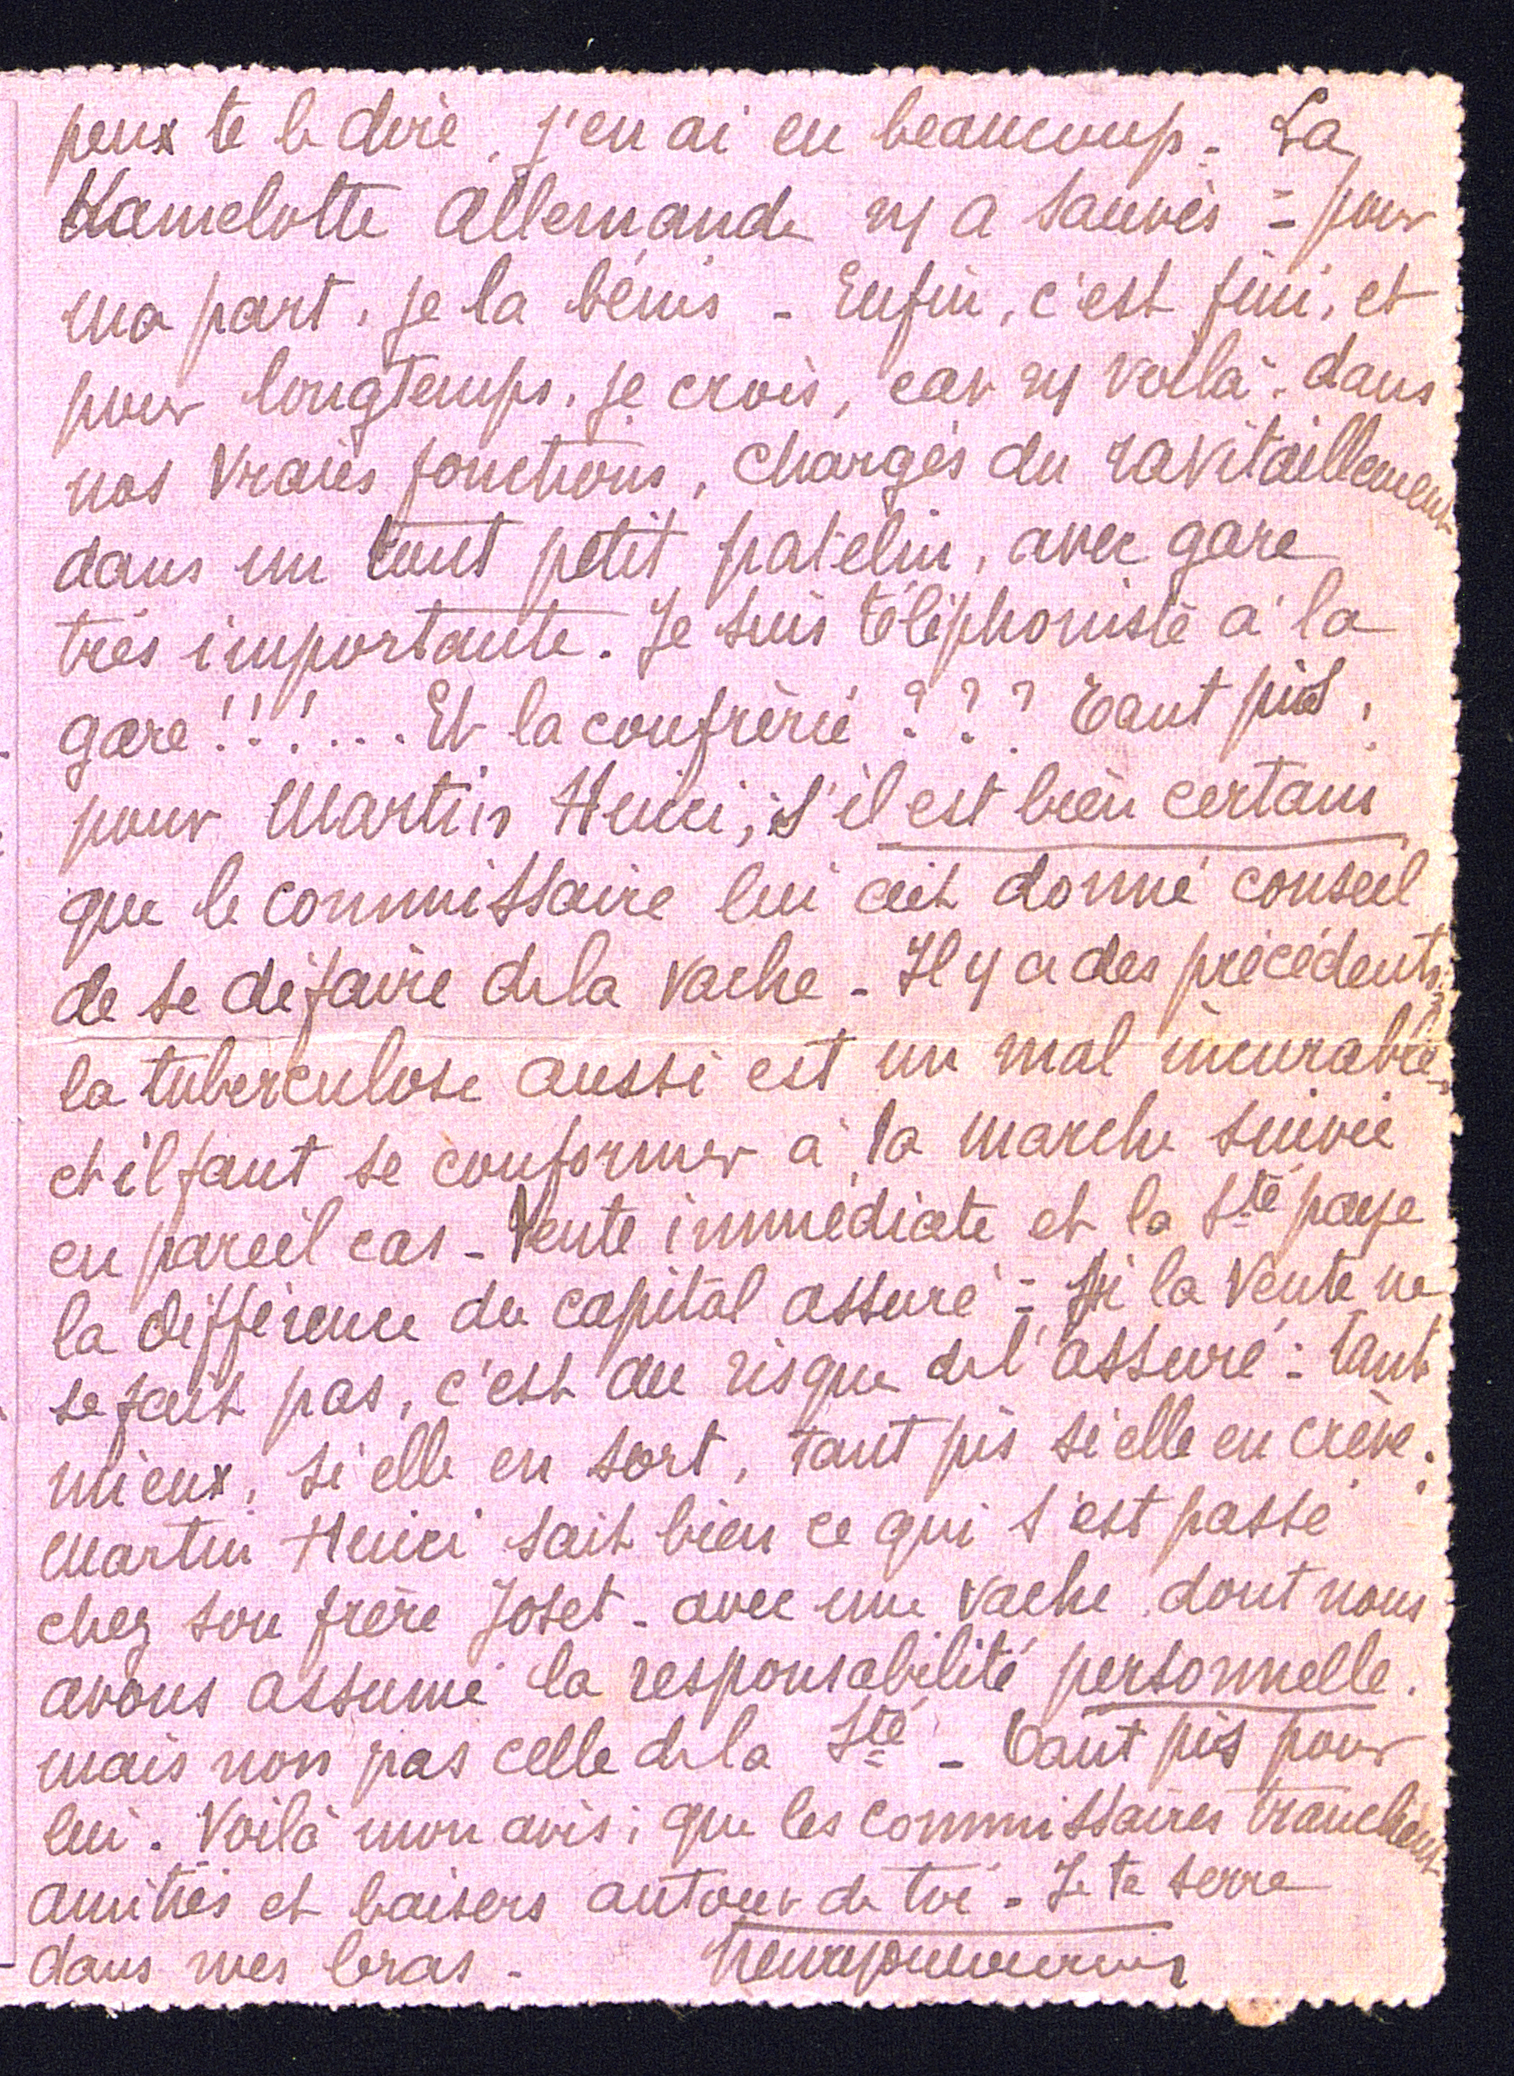 peux te le dire, j'en ai eu beaucoup - La
Kamelotte allemande ns a sauvés = pour
ma part, je la bénis - Enfin, c'est fini, et
pour longtemps, je crois, car ns voilà dans
nos vraies fonctions, chargés du ravitaillement
dans un tout petit patelin, avec gare
très importante. Je suis téléphoniste à la
gare !!!.... Et la confrérie ??? Tant pis,
pour Martin Henri, s'il est bien certain
que le commissaire lui ait donné conseil
de se défaire de la vache - Il y a des précédents;
la tuberculose aussi est un mal incurable,
et il faut se conformer à la marche suivie
en pareil cas - Vente immédiate et la Sté paye
la différence du capital assuré = Si la vente ne
se fait pas, c'est au risque de l'assuré : tant
mieux, si elle en sort, tant pis si elle en crève.
Martin Henri sait bien ce qui s'est passé
chez son frère Joset - avec une vache dont nous
avons assumé la responsabilité personnelle.
mais non pas celle de la Sté - Tant pis pour
lui. Voilà mon avis; que les commissaires tranchent
amitiés et baisers autour de toi - Je te serre
dans mes bras -